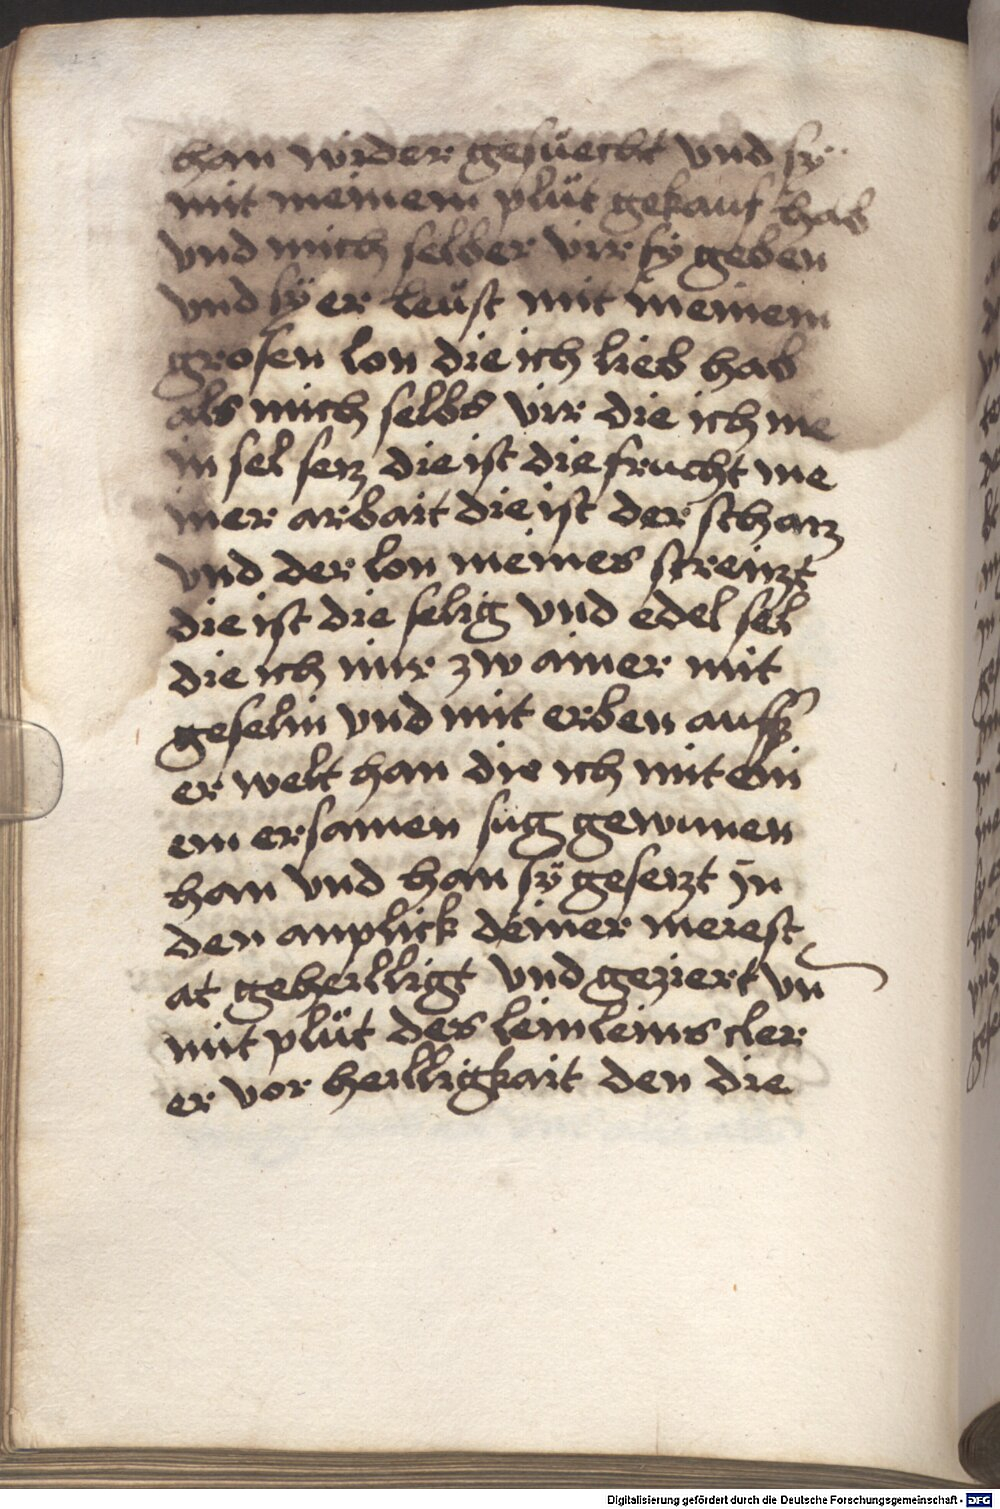 han wider gesüecht vnd sy
mit meinem plüt gekauf hab
vnd mich selber vir sy geben
vnd sÿ er leüst mit meinem
grosen lon die ich lieb hab
als mich selbs vir die ich me
in sel secz die ist die frucht me
iner arbait die ist der schacz
vnd der lon meines streiczt
die ist die selig vnd edel sel
die ich mir zw ainer mit
geselin vnd mit erben auff
er welt han die ich mit ein
em ersamen sug gewunen
han vnd han sÿ geseczt Jn
den anplick deiner meiest
at geheilligt vnd geziert vn
mit plüt des lemleins cler
er vor heilligkait den die
Digitalisierung gefördert durch die Deutsche Forschungsgemeinschaft - DFG